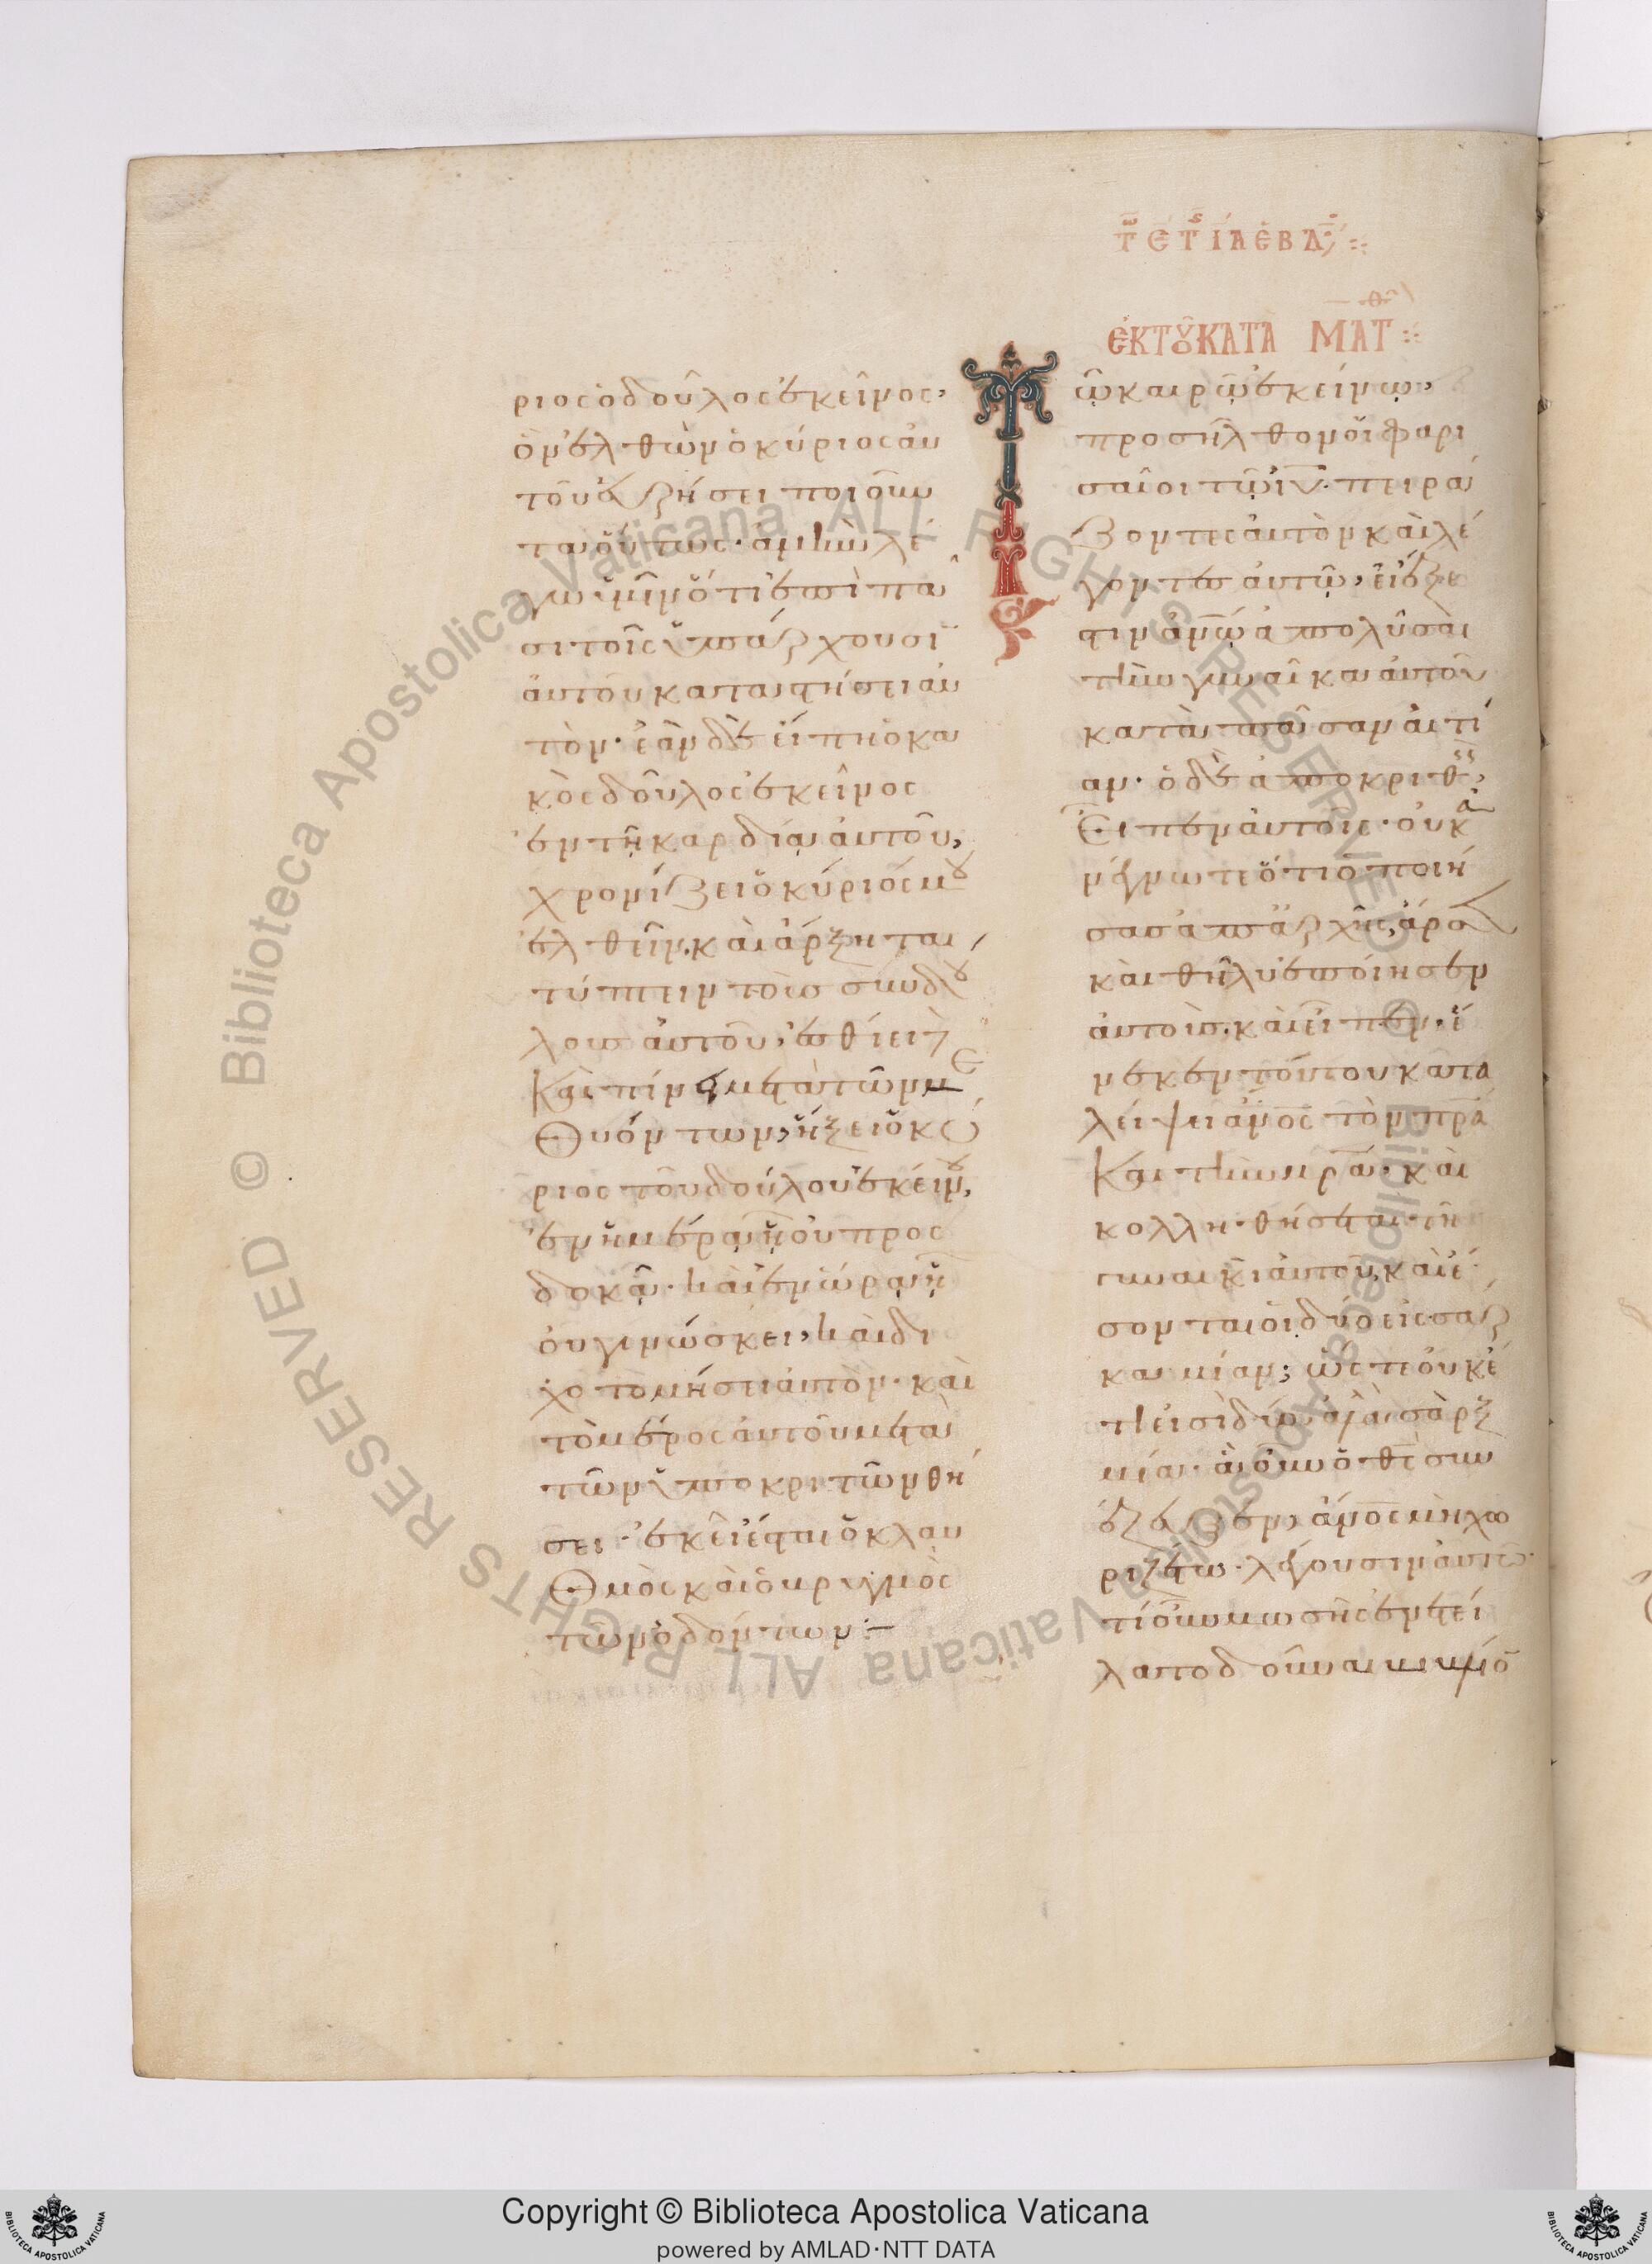 ριος ὁ δοῦλος ἐκεῖνος,
ὃν ἐλθὼν ὁ κύριος αὐ
τοῦ εὑρήσει ποιοῦν
τα οὕτως· ἀμὴν λέ
γω ὑμῖν ὅτι ἐπὶ πᾶ
σι τοῖς ὑπάρχουσῖ
αὐτοῦ καταστήσει αὐ
τόν· ἐὰν δὲ εἴπη ὁ κα
κὸς δοῦλος ἐκεῖνος
ἐν τῇ καρδίᾳ αὐτοῦ,
χρονίζει ὁ κύριός μου
ἐλθεῖν· καὶ ἄρξηται
τύπτειν τοὺς συνδού
λους αὐτοῦ, ἐσθίει δὲ
καὶ πίνει μετὰ τῶν με
θυόντων, ἥξει ὁ κύ
ριος τοῦ δούλου ἐκείνου,
ἐν ἡμέρᾳ ᾗ οὐ προς
δοκᾷ· καὶ ἐν ὥρᾳ ᾗ
οὐ γινώσκει, καὶ δι
χοτομήσει αὐτόν· καὶ
τὸ μέρος αὐτοῦ μετὰ
τῶν ὑποκριτῶν θή
σει· ἐκεῖ ἔσται ὁ κλαυ
θμὸς καὶ ὁ βρυγμὸς
τῶν ὀδόντων :–
Τῶ ΕΤ ΙΑ ΕΒΔ
ἘΚ ΤΟῦ ΚΑΤΑ ΜΑΤΘ
Τῷ καιρῷ ἐκείνῳ,
προσῆλθον οἱ φαρι
σαῖοι τῷ ἰῦ· πειρά
ζοντες αὐτὸν καὶ λέ
γοντες αὐτῷ, εἰ ἔξε
στιν ἀνῷ ἀπολῦσαι
τὴν γυναῖκα αὐτοῦ
κατὰ πᾶσαν αἰτί
αν· ὁ δὲ ἀποκριθεὶς,
εἶπεν αὐτοῖς· οὐκ ἀ
νέγνωτε ὅτι ὁ ποιή
σας ἀπ' ἀρχῆς, ἄρσεν
καὶ θῆλυ ἐποίησεν
αὐτούς· καὶ εἶπεν, ἕ
νεκεν τούτου κατα
λείψει ἄνος τὸν πρα
καὶ τὴν μρα· καὶ
κολληθήσεται τῇ
γυναικὶ αὐτοῦ, καὶ ἔ
σονται οἱ δύο εἰς σάρ
κα μίαν; ὥστε οὐκέ
τι εἰσὶ δύο, ἀλλὰ σὰρξ
μία· ὃ οὖν ὁ θς συν
έζευξεν, ἄνος μὴ χω
ριζέτω· λέγουσιν αὐτῷ·
τί οὖν μωσῆς ἐνετεί
λατο δοῦναι βιβλίον
Copyright © Biblioteca Apostolica Vaticana
powered by AMLAD·NTT DATA